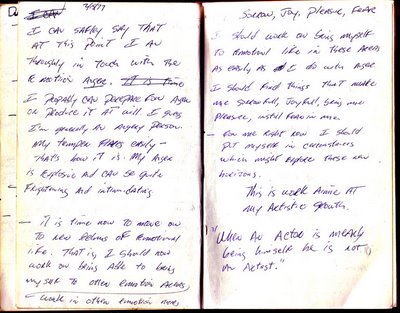 I can
7/3/77
I can safely say that
at this point I am
thoroughly in touch with the
emotion Anger. It is time
I probably can prepare for Anger
or produce it at will. I guess
I'm generally an angry person.
My temper flares easily —
that's how it is. My Anger
is explosive and can be quite
frightening and intimidating.
— It is time now to move on
to new realms of emotional
life. That is, I should now
work on being able to bring
myself to other emotion areas
— work in other emotion areas
Sorrow, Joy, Pleasure, Fear
I should work on being myself
to emotional life in these areas
as easily as I do with Anger
I should find things that make
me sorrowful, joyful, bring me
pleasure, instill fear in me.
— For me right now I should
put myself in circumstances
which might explore these new
horizons.
This is work aimed at
my Artistic growth.
"When an actor is merely
being himself he is not
an Artist."